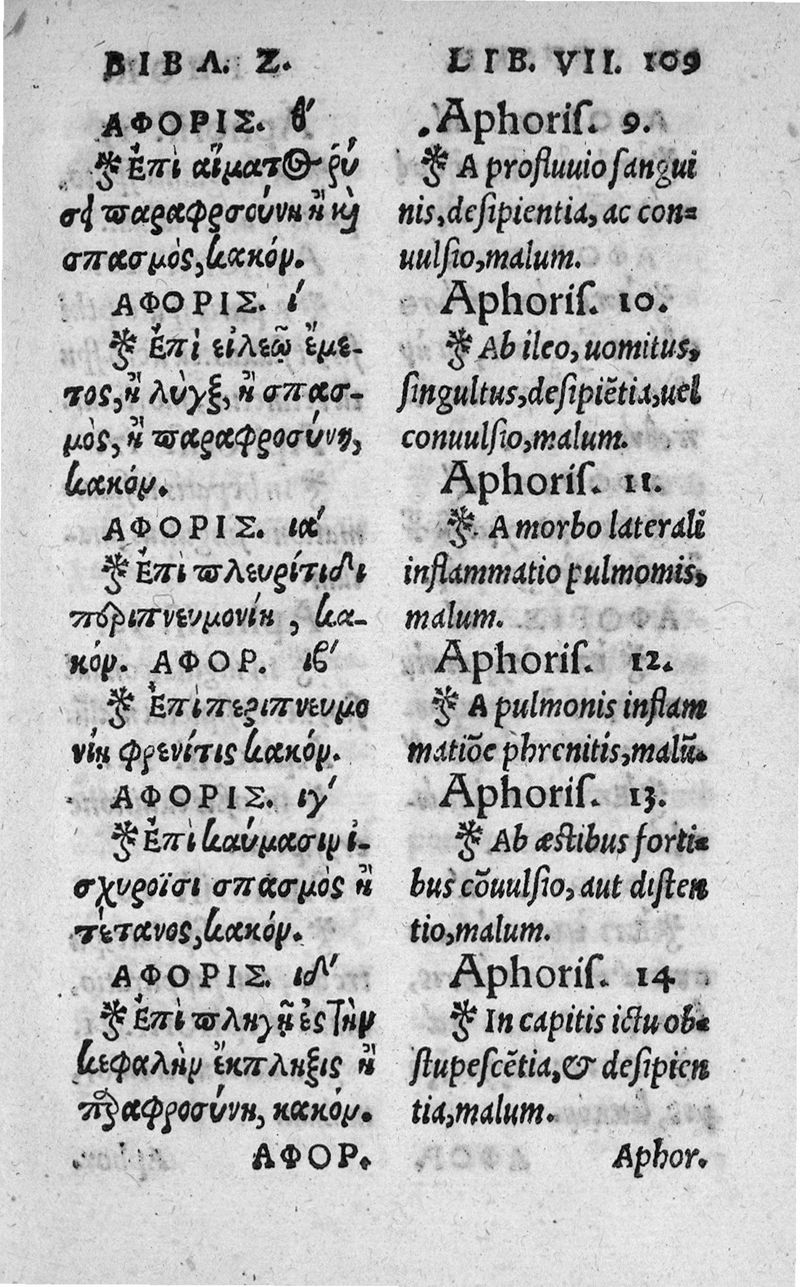 ΒΙΒΛ. Ζ.
ΑΦΟΡΙΣ. θ´
Ἐπὶ αἵματος ῥύ
σει παραφροσύνη ἢ καὶ
σπασμὸς, κακόν.
ΑΦΟΡΙΣ. ί
Ἐπὶ εἰλεῷ ἔμε-
τος, ἢ λὺγξ, ἢ σπασ-
μὸς, ἢ παραφροσύνη,
κακόν.
ΑΦΟΡΙΣ. ια´
Ἐπὶ πλευρίτιδι
περιπνευμονίη, κα-
κόν. ΑΦΟΡ. ιβ´
Ἐπὶ περιπνευμο
νίῃ φρενίτις κακόν.
ΑΦΟΡΙΣ. ιγ´
Ἐπὶ καύμασιν ἰ-
σχυροῖσι σπασμὸς ἢ
τέτανος, κακόν.
ΑΦΟΡΙΣ. ιδ´
Ἐπὶ πληγῇ ἐς τὴν
κεφαλὴν ἔκπληξις ἢ
παραφροσύνη, κακόν.
ΑΦΟΡ.
LIB. VII. 109
Aphoris. 9.
A profluuio sangui
nis, desipientia, ac con-
uulsio, malum.
Aphoris. 10.
Ab ileo, uomitus,
singultus, desipiẽtia, uel
conuulsio, malum.
Aphoris. 11.
A morbo laterali
inflammatio pulmomis,
malum.
Aphoris. 12.
A pulmonis inflam
matiõe phrenitis, malũ.
Aphoris. 13.
Ab æstibus forti-
bus cõuulsio, aut disten
tio, malum.
Aphoris. 14
In capitis ictu ob-
stupescẽtia, & desipien
tia, malum.
Aphor.